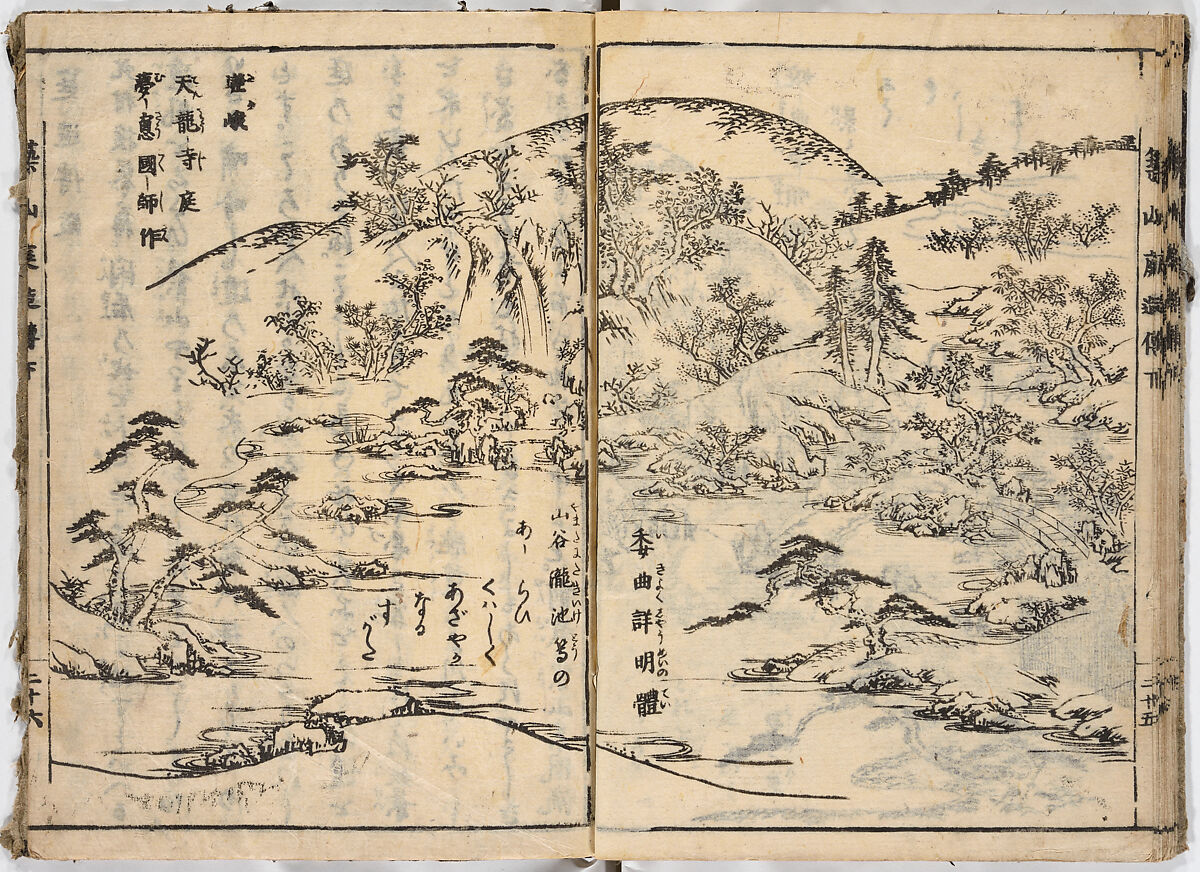 築山庭造傳 下
二十五
委曲詳明體
山谷瀧池等の
あしらひ
くハしく
あざやか
なる
すがた
嵯峨
天龍寺庭
夢窓國師作
築山庭造傳 下
二十六